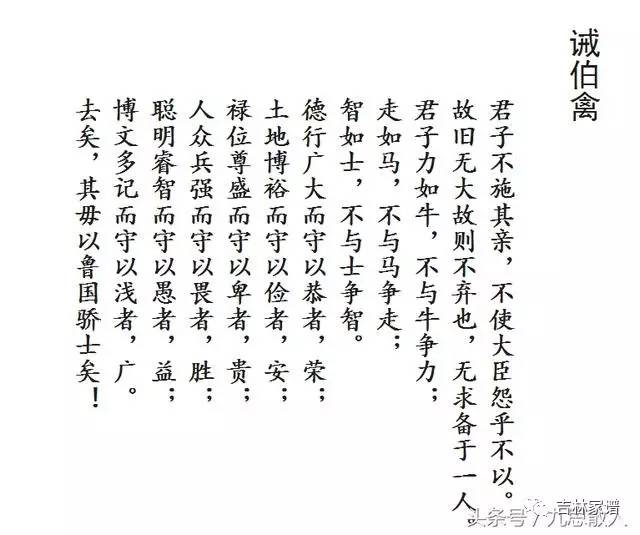 诫伯禽
君子不施其亲，不使大臣怨乎不以。
故旧无大故则不弃也，无求备于一人。
君子力如牛，不与牛争力；
走如马，不与马争走；
智如士，不与士争智。
德行广大而守以恭者，荣；
土地博裕而守以俭者，安；
禄位尊盛而守以卑者，贵；
人众兵强而守以畏者，胜；
聪明睿智而守以愚者，益；
博文多记而守以浅者，广。
去矣，其毋以鲁国骄士矣！
吉林家谱
头条号